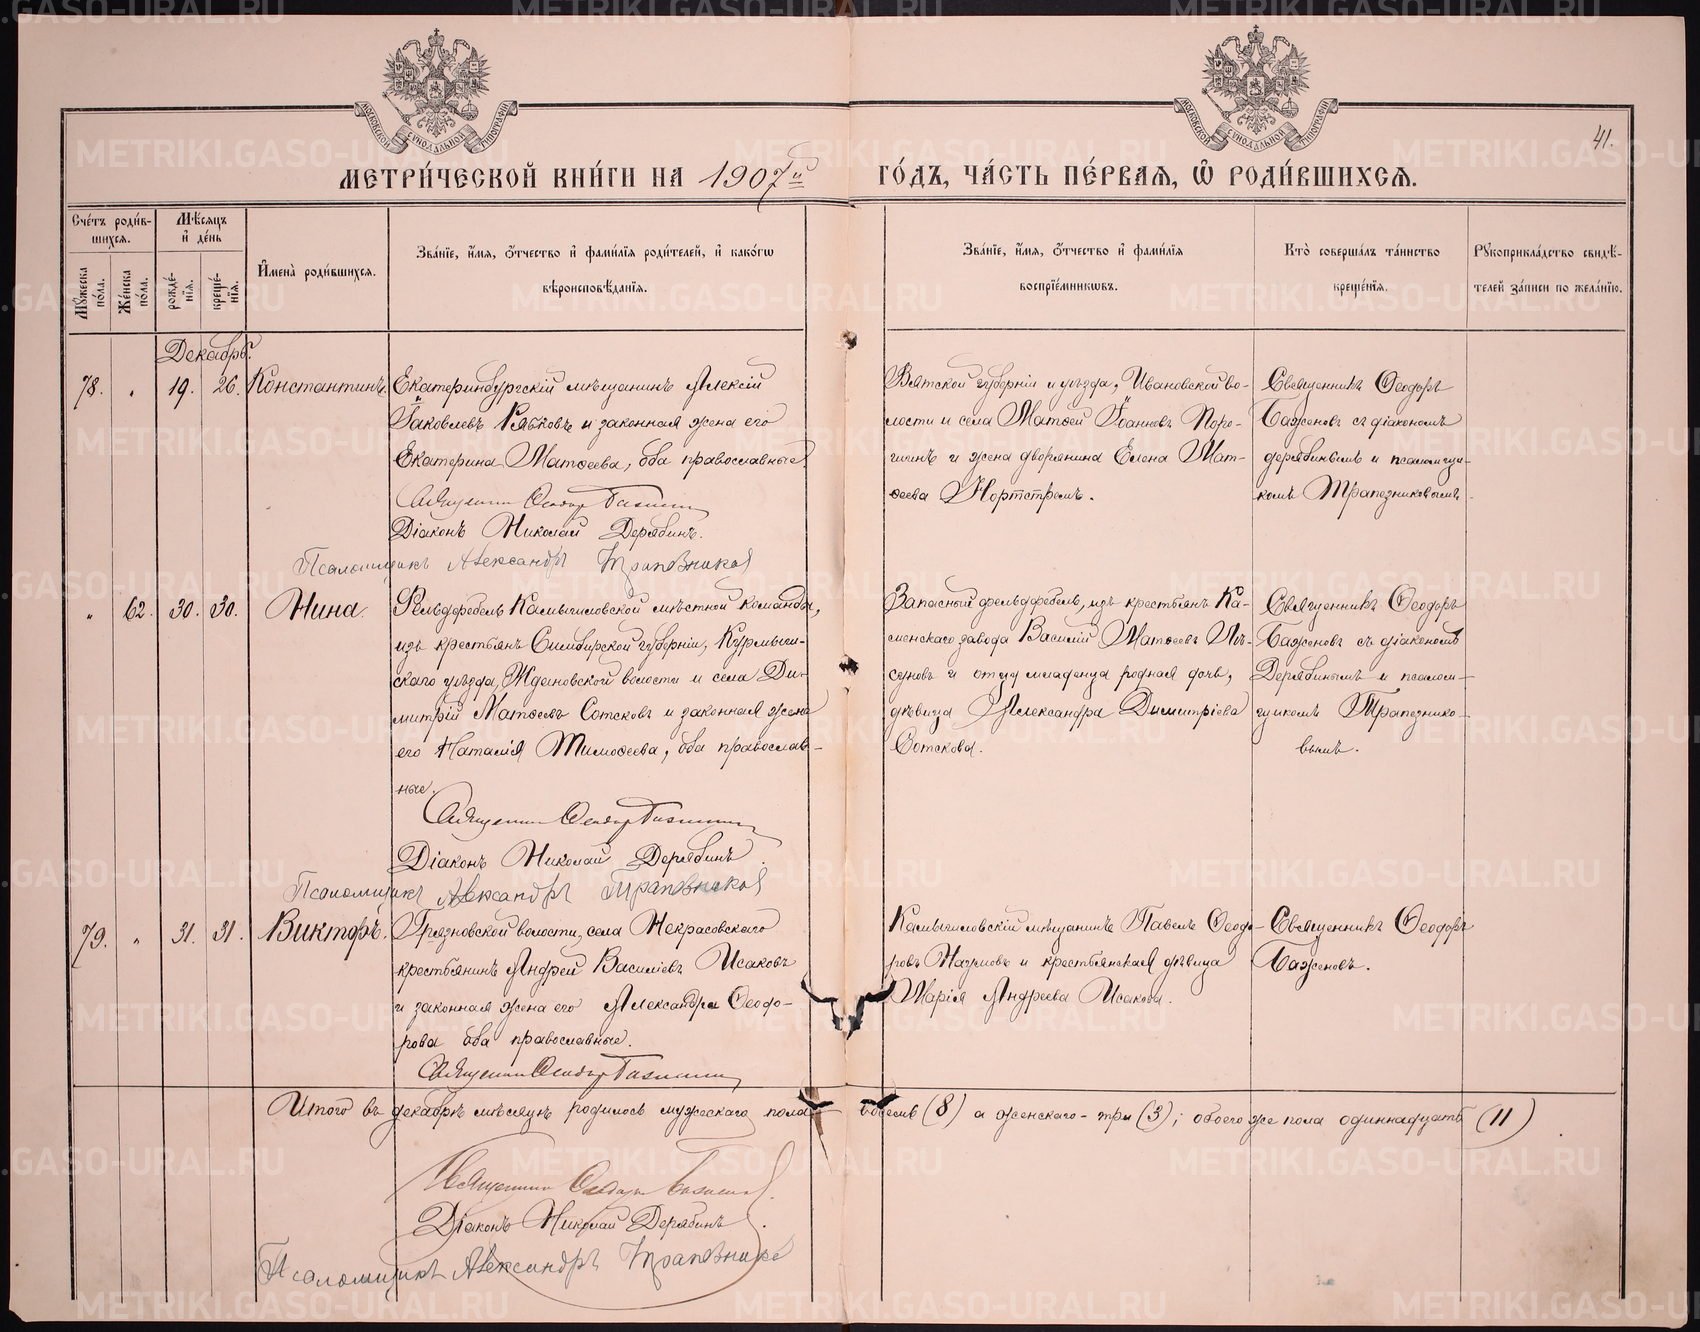 МЕТРИ́ЧЕСКОЙ КНИ́ГИ НА 1907й ГО́ДЪ, ЧА́СТЬ ПЕ́РВАѦ, Ѿ РОДИ́ВШИХСѦ.
41.
МОСКОВСКОЙ СѴНОДАЛЬНОЙ ТИПОГРАФІИ
МОСКОВСКОЙ СѴНОДАЛЬНОЙ ТИПОГРАФІИ
Сче́тъ роди́вшихсѧ.
Мꙋ́жеска по́ла.
Же́нска по́ла.
Мѣ́сѧцъ и҆ де́нь
рожде́нїѧ.
креще́нїѧ.
И҆мена̀ роди́вшихсѧ.
Зва́нїе, и҆́мѧ, ѻ҆́тчество и҆ фами́лїѧ роди́телей, и҆ како́гѡ
вѣроисповѣ́данїѧ.
Зва́нїе, и҆́мѧ, ѻ҆́тчество и҆ фами́лїѧ
воспрїе́мникѡвъ.
Кто̀ соверша́лъ та́инство
креще́нїѧ.
Рꙋкоприкла́дство свидѣ́-
телей за́писи по жела́нїю.
Декабрь.
78. „ 19. 26. Константинъ.
Екатеринбургскій мѣщанинъ Алексій
Іаковлевъ Рябковъ и законная жена его
Екатерина Матѳеева, оба православные
Священникъ Ѳеодоръ Баженовъ
Діаконъ Николай Дерябинъ.
Псаломщикъ Александръ Трапезников
Вятской губерніи и уѣзда, Ивановской во-
лости и села Матѳей Іоанновъ Поро-
шинъ и жена дворянина Елена Мат-
ѳеева Нортстремъ.
Священникъ Ѳеодоръ
Баженовъ съ діакономъ
Дерябинымъ и псаломщи-
комъ Трапезниковымъ
„ 62. 30. 30. Нина.
Фельдфебель Камышловской мѣстной команды,
изъ крестьянъ Симбирской губерніи, Курмыш-
скаго уѣзда, Ждановской волости и села Ди-
митрій Матѳеевъ Сотсковъ и законная жена
его Наталія Тимоѳеева, оба православ-
ные.
Священникъ Ѳеодоръ Баженовъ
Діаконъ Николай Дерябинъ.
Псаломщикъ Александръ Трапезников
Запасный фельдфебель, изъ крестьянъ Ка-
менскаго завода Василій Матѳеевъ
и отцу младенца родная дочь,
дѣвица Александра Димитріева
Сотскова.
Священникъ Ѳеодоръ
Баженовъ съ діакономъ
Дерябинымъ и псалом-
щикомъ Трапезнико-
вымъ.
79. „ 31. 31. Викторъ.
Грязновской волости, села Некрасовскаго
крестьянинъ Андрей Василіевъ Исаковъ
и законная жена его Александра Ѳеодо-
рова оба православные.
Священникъ Ѳеодоръ Баженовъ
Камышловскій мѣщанинъ Павелъ Ѳеодо-
ровъ Наумовъ и крестьянская дѣвица
Марія Андреева Исакова.
Священникъ Ѳеодоръ
Баженовъ.
Итого въ декабрѣ мѣсяцѣ родилось мужескаго пола восемь (8) а женскаго - три (3); обоего же пола одиннадцать (11)
Священникъ Ѳеодоръ Баженовъ.
Діаконъ Николай Дерябинъ.
Псаломщикъ Александръ Трапезников
METRIKI.GASO-URAL.RU